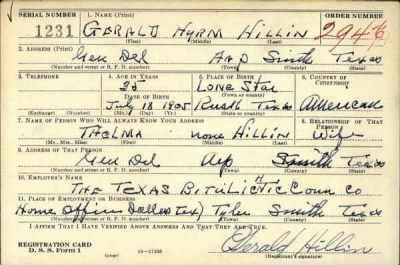 SERIAL NUMBER 1. NAME (Print) ORDER NUMBER
1231 GERALD HYRM HILLIN 2946
(First) (Middle) (Last)
2. ADDRESS (Print)
Gen Del Arp Smith Texas
(Number and street or R. F. D. number) (Town) (County) (State)
3. TELEPHONE 4. AGE IN YEARS 5. PLACE OF BIRTH 6. COUNTRY OF CITIZENSHIP
35 Lone Star
DATE OF BIRTH (Town or county)
July 18 1905 Rusk Texas American
(Exchange) (Number) (Mo.) (Day) (Yr.) (State or country)
7. NAME OF PERSON WHO WILL ALWAYS KNOW YOUR ADDRESS 8. RELATIONSHIP OF THAT PERSON
THELMA none HILLIN Wife
(Mr., Mrs., Miss) (First) (Middle) (Last)
9. ADDRESS OF THAT PERSON
Gen Del Arp Smith Texas
(Number and street or R. F. D. number) (Town) (County) (State)
10. EMPLOYER'S NAME
THE TEXAS BITULITHIC CO
11. PLACE OF EMPLOYMENT OR BUSINESS
Home Office Dallas Tex) Tyler Smith Texas
(Number and street or R. F. D. number) (Town) (County) (State)
I AFFIRM THAT I HAVE VERIFIED ABOVE ANSWERS AND THAT THEY ARE TRUE.
REGISTRATION CARD Gerald Hillin
D. S. S. Form 1 (over) 16—17105 (Registrant's signature)